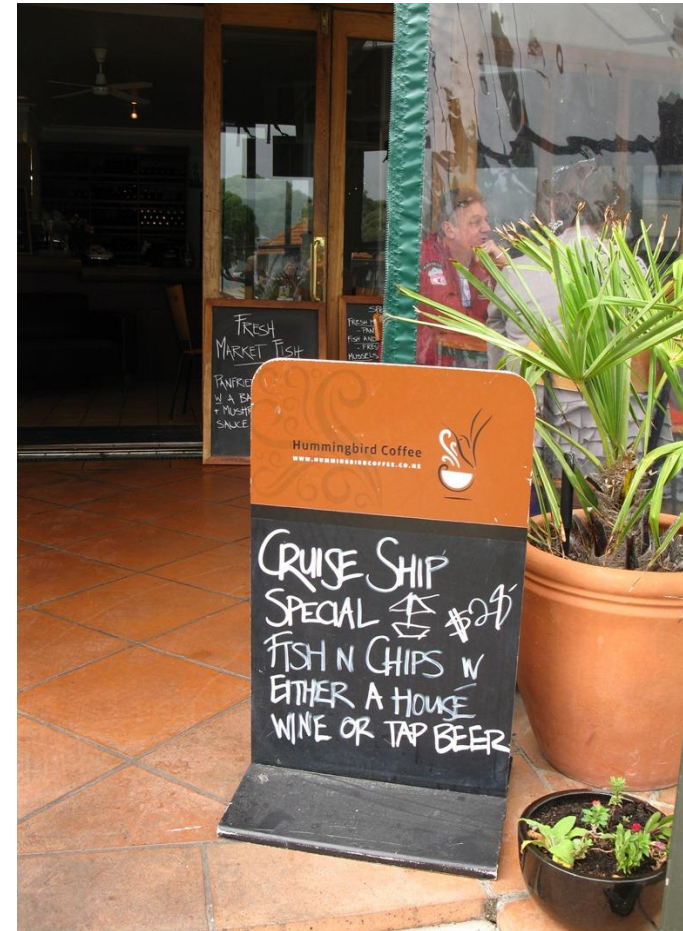 FRESH
MARKET FISH
PANFRIED
W A BA
+ MUSHR
SAUCE
FRESH
- PAN
FISH AND
- FRES
MUSSELS
Hummingbird Coffee
WWW.HUMMINGBIRDCOFFEE.CO.NZ
CRUISE SHIP
SPECIAL $28
FISH N CHIPS W
EITHER A HOUSE
WINE OR TAP BEER